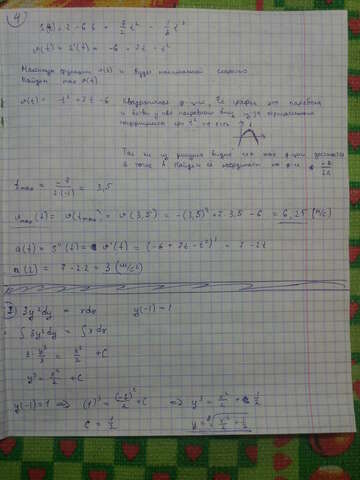 4
v(t) = S'(t) = -6 + 7t - t²
Максимум функции v(t) и будет максимальной скорость
Найдем max v(t)
v(t) = -t² + 7t - 6 Квадратичная ф-ция, Ее график это парабола
и ветви у неё направлены вниз из за отрицательного
коэффициента при t²
Так как из рисунка видно что max ф-ции достигается
t max = -7 / 2·(-1) = 3,5
v max (t) = v(t max) = v(3,5) = -(3,5)² + 7·3,5 - 6 = 6,25 (м/с)
a(t) = S''(t) = v'(t) = (-6 + 7t - t²)' = 7 - 2t
a(2) = 7 - 2·2 = 3 (м/с²)
2 3y²dy = xdx y(-1) = 1
∫ 3y²dy = ∫ x dx
3·y³/3 = x²/2 + C
y³ = x²/2 + C
y(-1) = 1 ⟹ (1)³ = (-1)²/2 + C ⟹ y³ = x²/2 + 1/2
C = 1/2 y = ∛(x²/2 + 1/2)